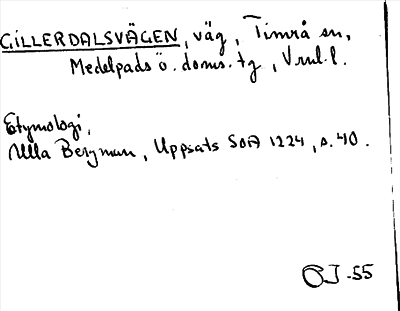 GILLERDALSVÄGEN, väg, Timrå sn,
Medelpads ö. doms. tg, Vnl. l.
Etymologi,
Ulla Bergman, Uppsats SOA 1224, s. 40.
OJ -55